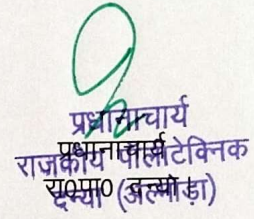 प्रधानाचार्य
प्रधानाचार्य
राजकीय पॉलीटेक्निक
दन्या (अल्मोड़ा)